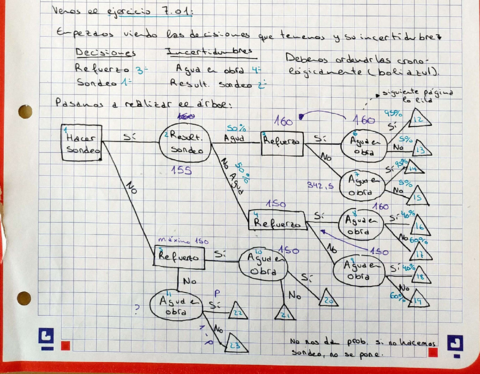 Vemos el ejercicio 7.01:
Empezamos viendo las decisiones que tenemos y su incertidumbre?
Decisiones Incertidumbres Debemos ordenarlas crono-
Refuerzo 3º Agua en obra 4º lógicamente (boli azul).
Sondeo 1º Result. sondeo 2º
Pasamos a realizar el árbol:
siguiente página
160
160
160
1 Hacer sondeo
Sí
2 Result. sondeo
155
50%
Agua
3 Refuerzo
Sí
6 Agua en obra
Sí
95%
12
5%
No
13
No
342,5
7 Agua en obra
Sí
95%
14
5%
No
15
50%
No Agua
150
4 Refuerzo
Sí
160
8 Agua en obra
Sí 40%
16
No 60%
17
No
150
9 Agua en obra
Sí 40%
18
60% No
19
No
máximo 150
5 Refuerzo
Sí
150
10 Agua en obra
Sí
20
No
21
No
?
11 Agua en obra
P
Sí
22
No
1-P
23
No nos da prob. si no hacemos
sondeo, no se pone.